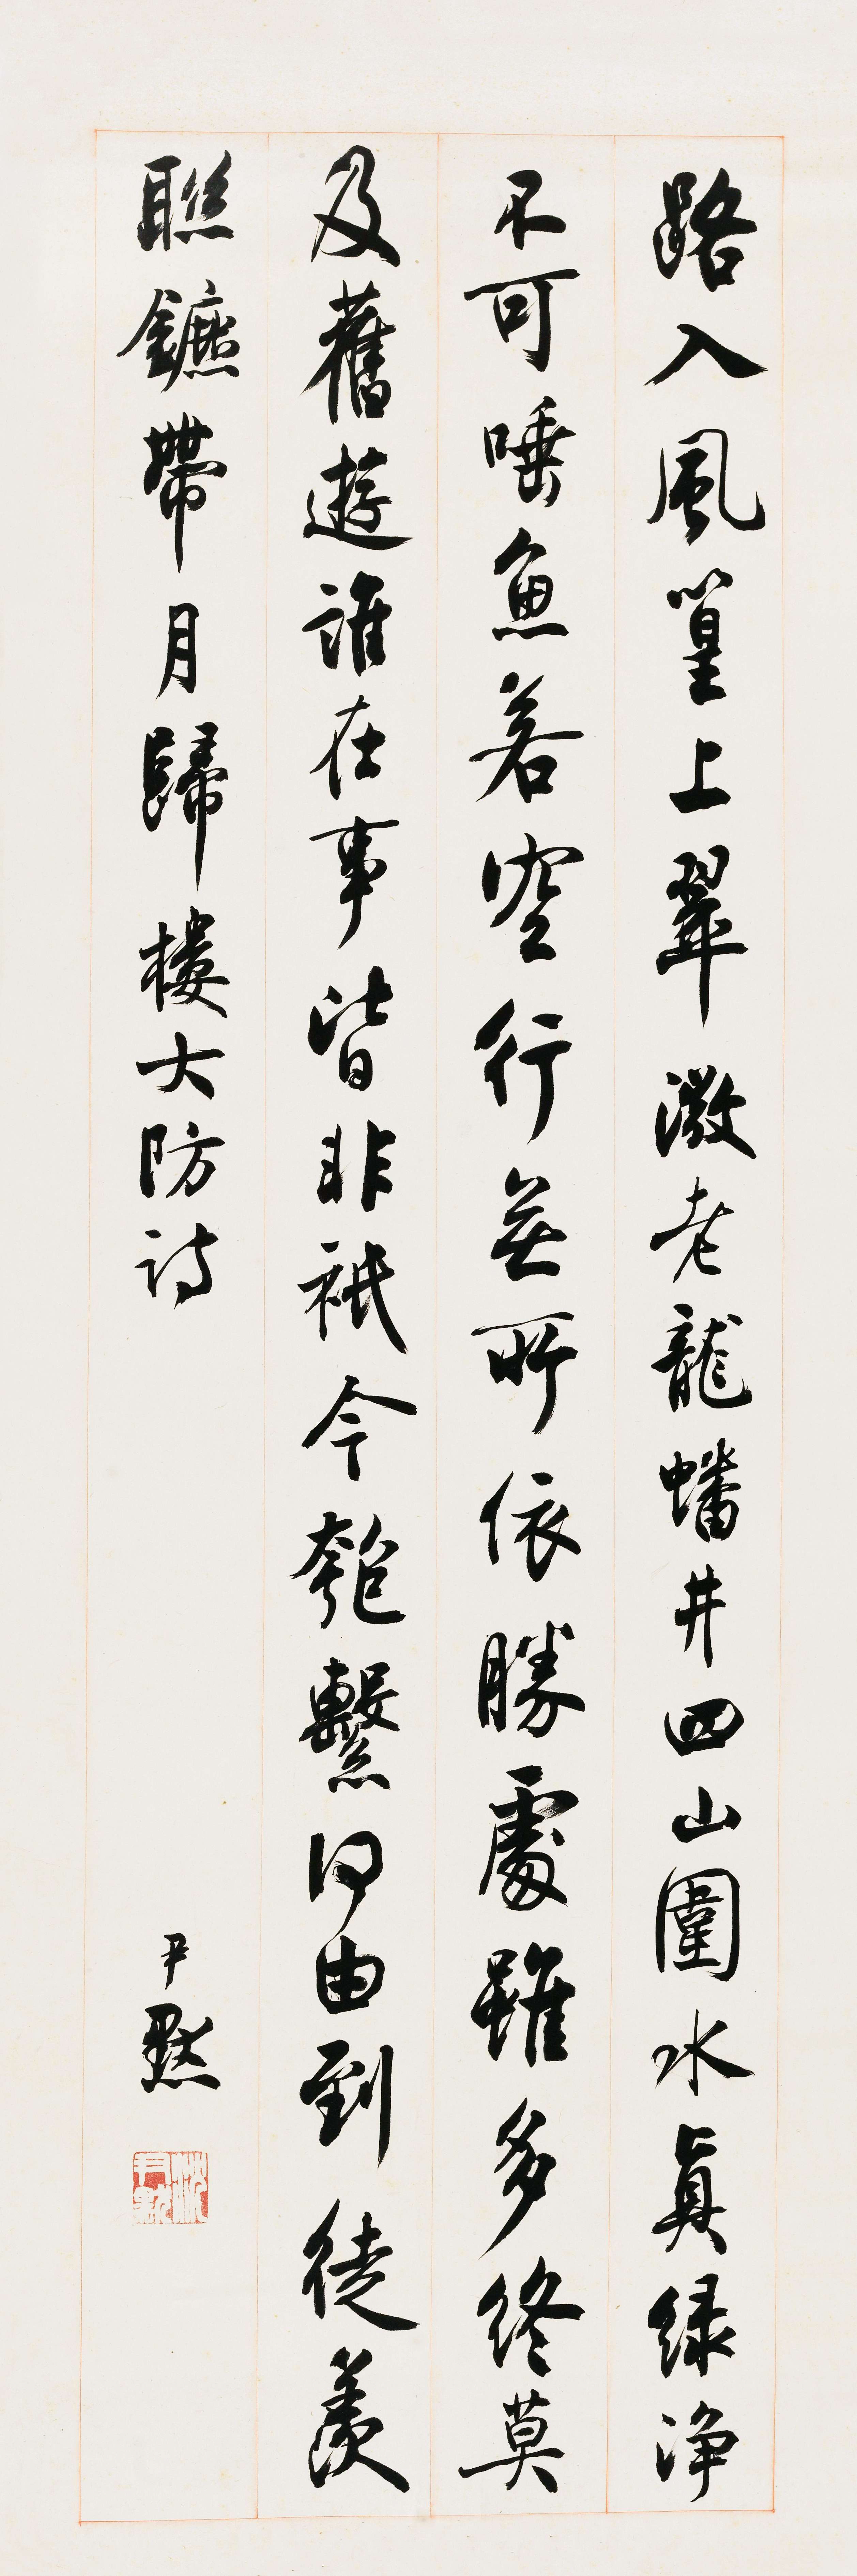 路入風篁上翠微老龍蟠井四山圍水真綠淨
不可唾魚若空行無所依勝處雖多終莫
及舊遊誰在事皆非祇今匏繫何由到徒羨
聯鑣帶月歸樓大防詩
尹默
沈尹默